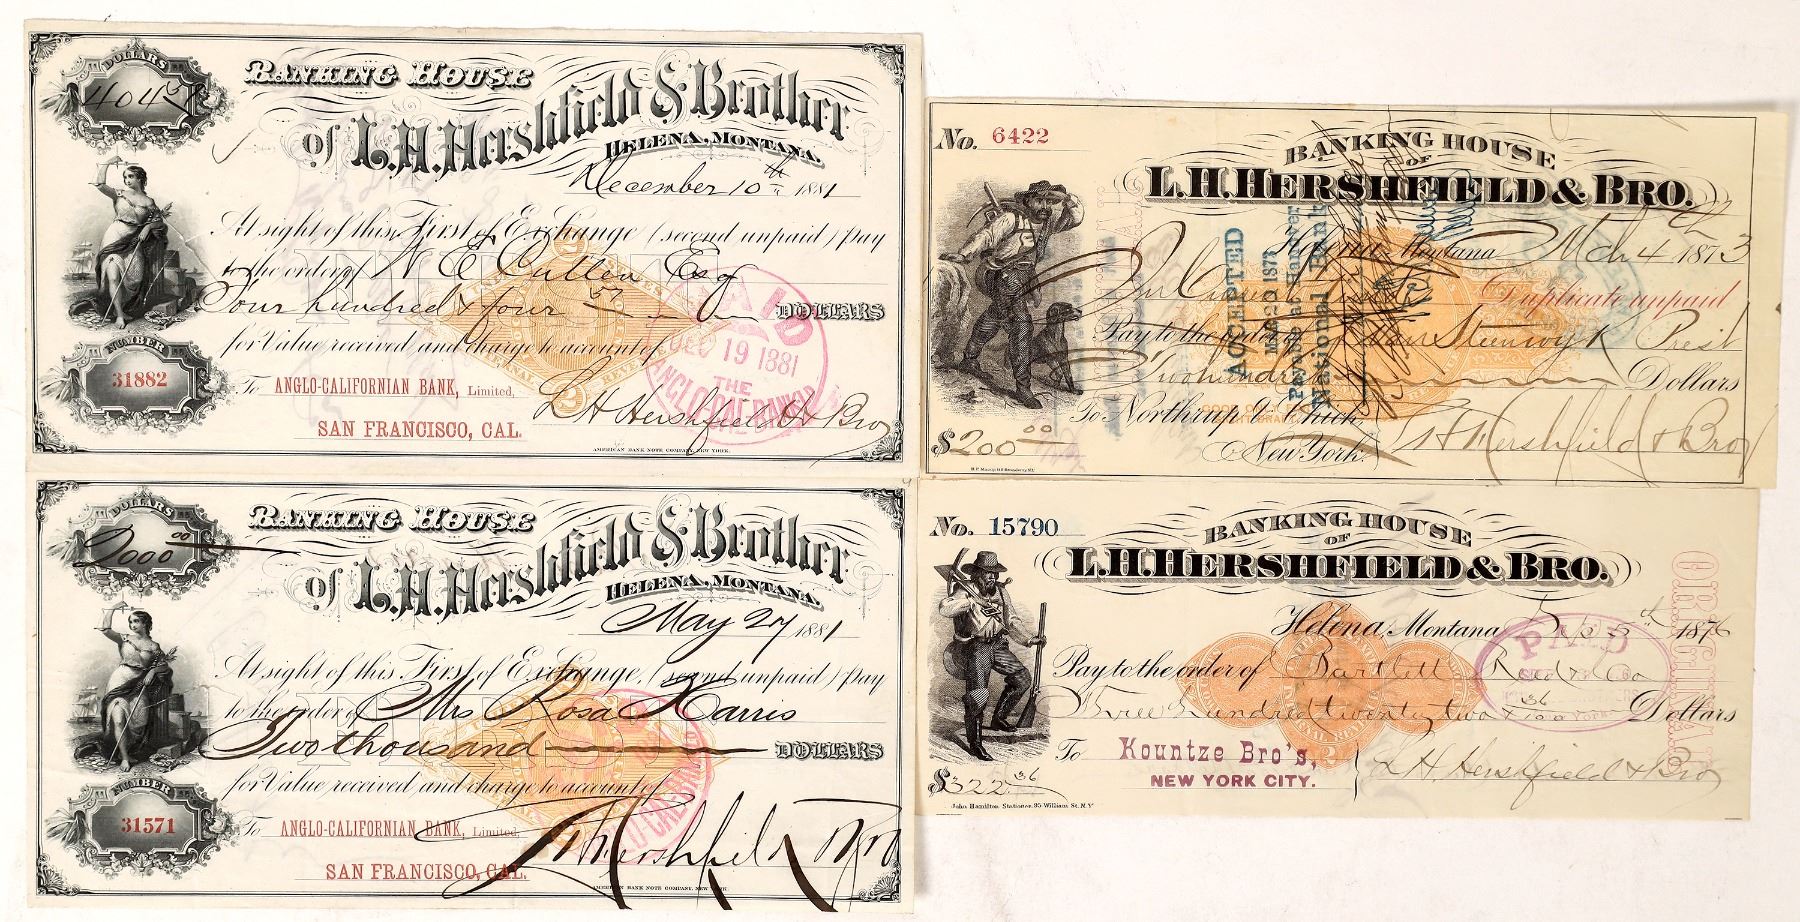 DOLLARS
404 57
BANKING HOUSE
of L.H. Hershfield & Brother
HELENA, MONTANA.
December 10th 1881
At sight of this First of Exchange (second unpaid) Pay
to the order of W E Cullen Esq
Four hundred & four 57 DOLLARS
for Value received and charge to account of
NUMBER
31882
To ANGLO-CALIFORNIAN BANK, Limited,
SAN FRANCISCO, CAL.
L H Hershfield & Bro
PAID
DEC 19 1881
THE
ANGLO-CAL. BANK
AMERICAN BANK NOTE COMPANY, NEW YORK.
DOLLARS
2000 00
BANKING HOUSE
of L.H. Hershfield & Brother
HELENA, MONTANA.
May 27 1881
At sight of this First of Exchange, (second unpaid) Pay
to the order of Mrs Rosa Harris
Two thousand DOLLARS
for Value received and charge to account of
NUMBER
31571
To ANGLO-CALIFORNIAN BANK, Limited,
SAN FRANCISCO, CAL.
L H Hershfield & Bro
AMERICAN BANK NOTE COMPANY, NEW YORK.
No. 6422
BANKING HOUSE
OF
L.H. HERSHFIELD & BRO.
Helena Montana Mch 4th 1873
Duplicate unpaid
Pay to the order of Steenwyk Prest
Two hundred Dollars
To Northrup & Chick,
New York.
$200 00
L H Hershfield & Bro
ACCEPTED
Payable at Hanover
National Bank
No. 15790
BANKING HOUSE
OF
L.H. HERSHFIELD & BRO.
Helena, Montana 5th 1876
Pay to the order of Bartlett Reed & Co
Three hundred twenty two 36/100 Dollars
To Kountze Bro's,
NEW YORK CITY.
$322 36
L H Hershfield & Bro
PAID
ORIGINAL
John Hamilton, Stationer, 95 William St. N.Y